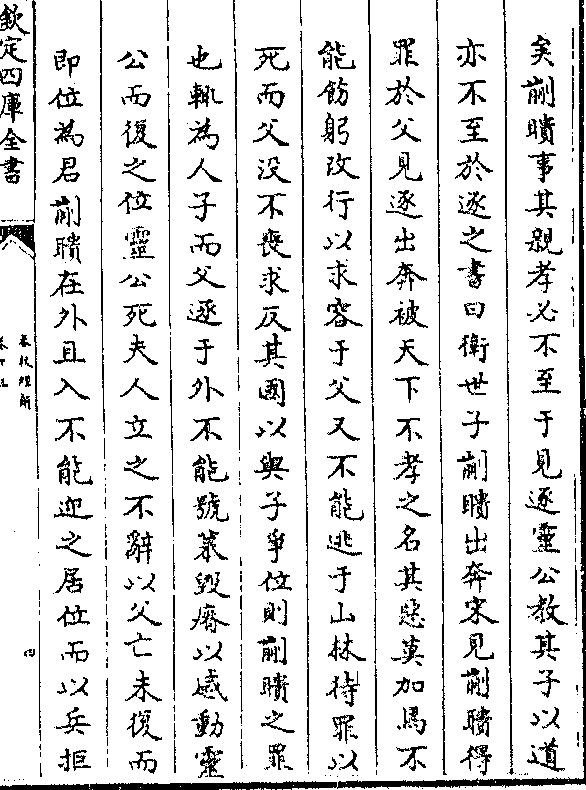 矣蒯聵事其親孝必不至于見逐靈公教其子以道
亦不至於逐之書曰衛世子蒯聵出奔宋見蒯聵得
罪於父見逐出奔被天下不孝之名其惡莫加焉不
能飭躬改行以求容于父又不能逃于山林待罪以
死而父没不喪求反其國以與子爭位則蒯聵之罪
也輒為人子而父逐于外不能號慕毀瘠以感動靈
公而復之位靈公死夫人立之不辭以父亡未復而
即位為君蒯聵在外且入不能迎之居位而以兵拒
欽定四庫全書
春秋經解
四